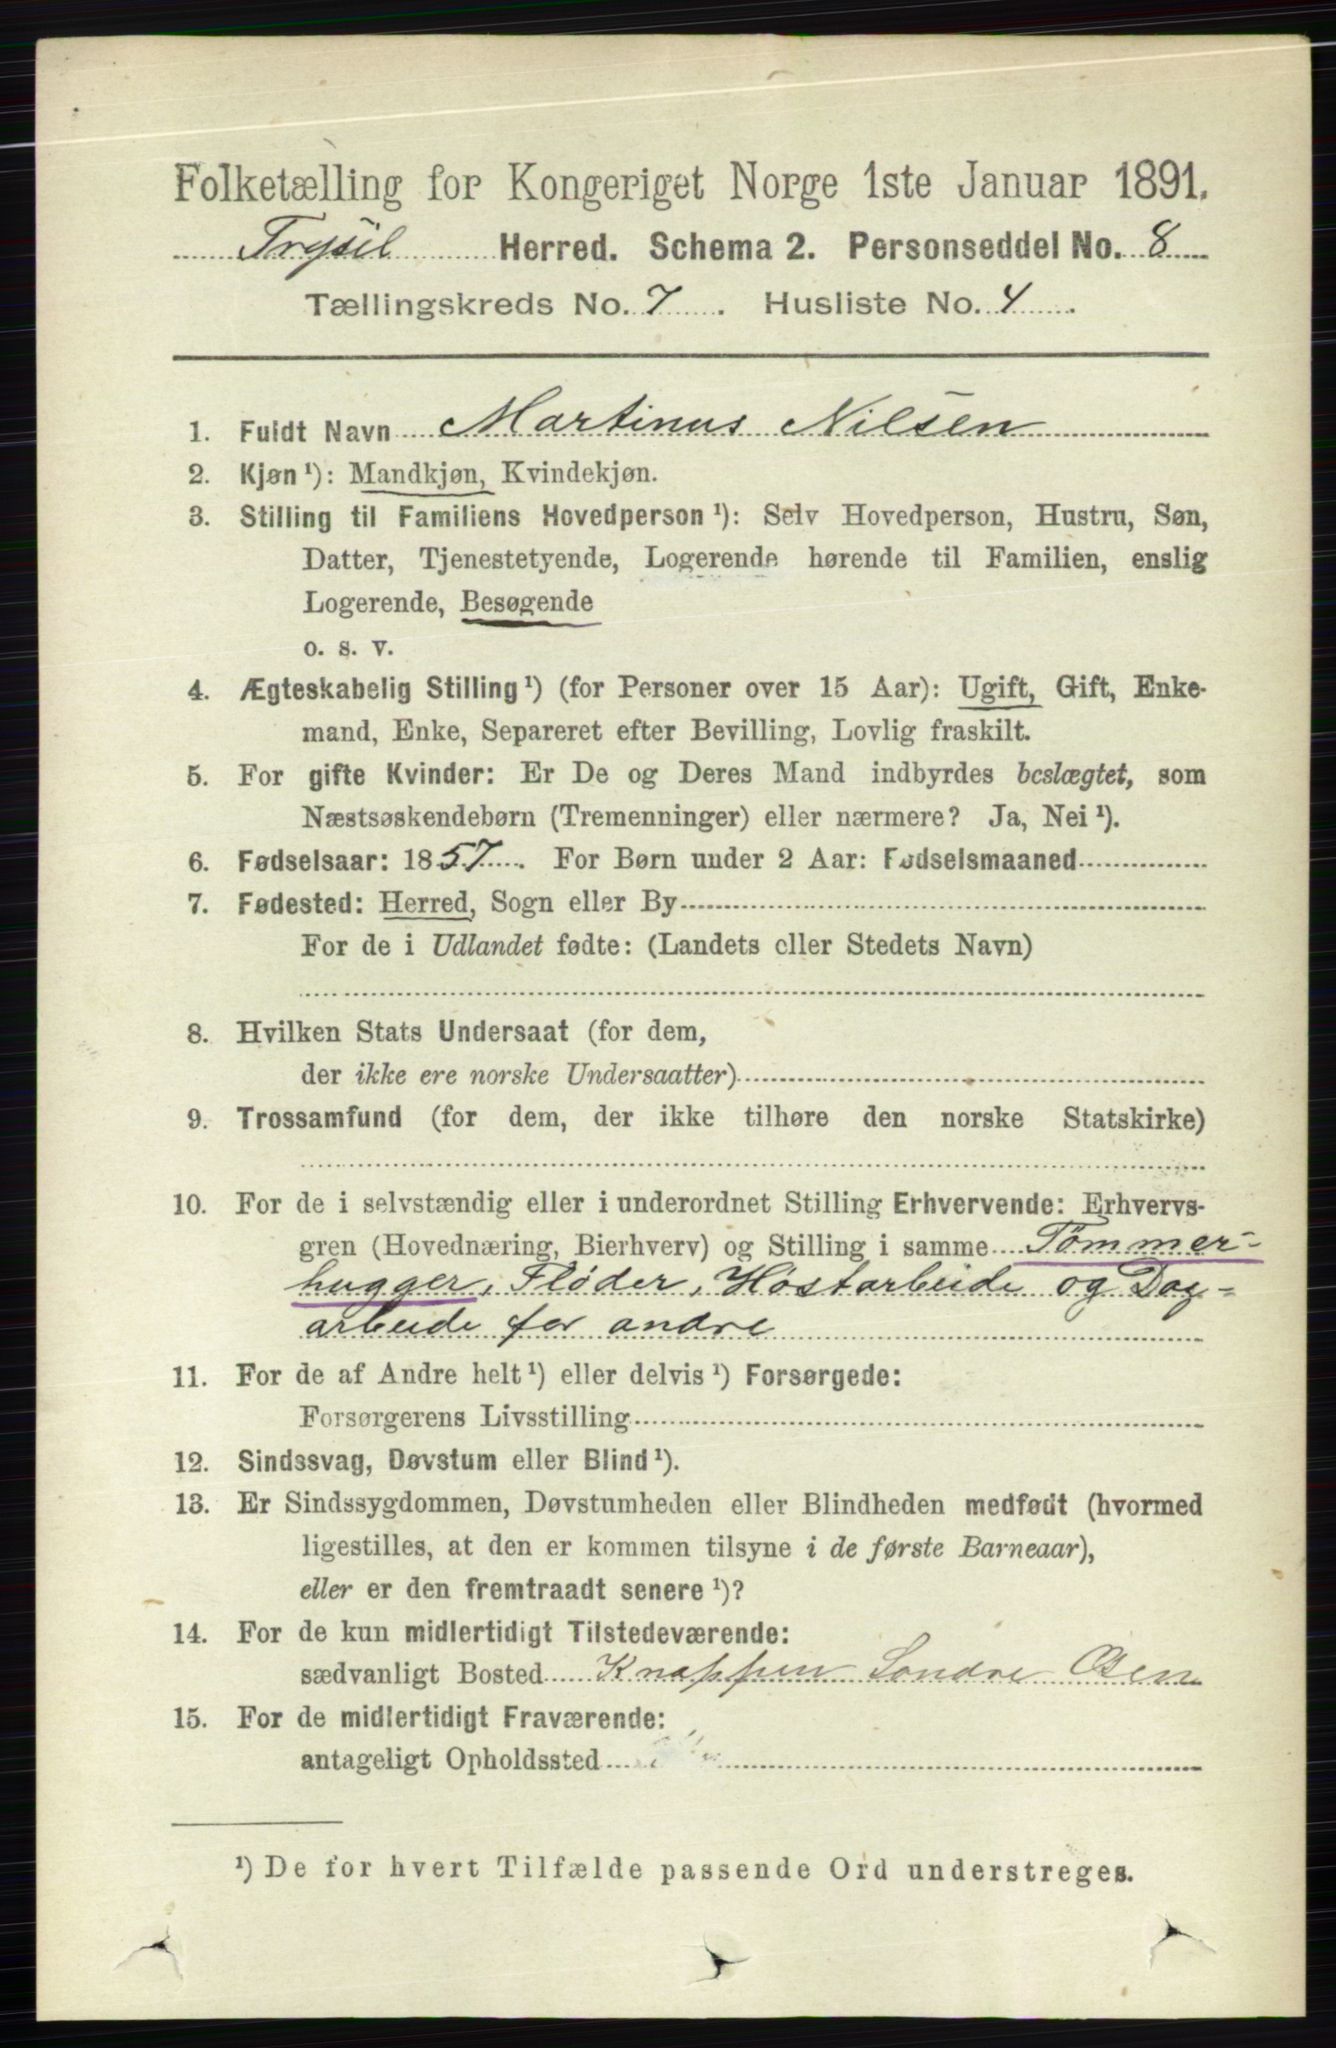 Folketælling for Kongeriget Norge 1ste Januar 1891.
Trysil Herred. Schema 2. Personseddel No. 8
Tællingskreds No. 7. Husliste No. 4.
1. Fuldt Navn Martinus Nilsen
2. Kjøn ¹): Mandkjøn, Kvindekjøn.
3. Stilling til Familiens Hovedperson ¹): Selv Hovedperson, Hustru, Søn,
Datter, Tjenestetyende, Logerende hørende til Familien, enslig
Logerende, Besøgende
o. s. v.
4. Ægteskabelig Stilling ¹) (for Personer over 15 Aar): Ugift, Gift, Enke-
mand, Enke, Separeret efter Bevilling, Lovlig fraskilt.
5. For gifte Kvinder: Er De og Deres Mand indbyrdes beslægtet, som
Næstsøskendebørn (Tremenninger) eller nærmere? Ja, Nei ¹).
6. Fødselsaar: 1857. For Børn under 2 Aar: Fødselsmaaned
7. Fødested: Herred, Sogn eller By
For de i Udlandet fødte: (Landets eller Stedets Navn)
8. Hvilken Stats Undersaat (for dem,
der ikke ere norske Undersaatter)
9. Trossamfund (for dem, der ikke tilhøre den norske Statskirke)
10. For de i selvstændig eller i underordnet Stilling Erhvervende: Erhvervs-
gren (Hovednæring, Bierhverv) og Stilling i samme Tömmer-
hugger, Fløder, Höstarbeide og Dag-
arbeide for andre
11. For de af Andre helt ¹) eller delvis ¹) Forsørgede:
Forsørgerens Livsstilling
12. Sindssvag, Døvstum eller Blind ¹).
13. Er Sindssygdommen, Døvstumheden eller Blindheden medfødt (hvormed
ligestilles, at den er kommen tilsyne i de første Barneaar),
eller er den fremtraadt senere ¹)?
14. For de kun midlertidigt Tilstedeværende:
sædvanligt Bosted Knappen Søndre Osen
15. For de midlertidigt Fraværende:
antageligt Opholdssted
¹) De for hvert Tilfælde passende Ord understreges.